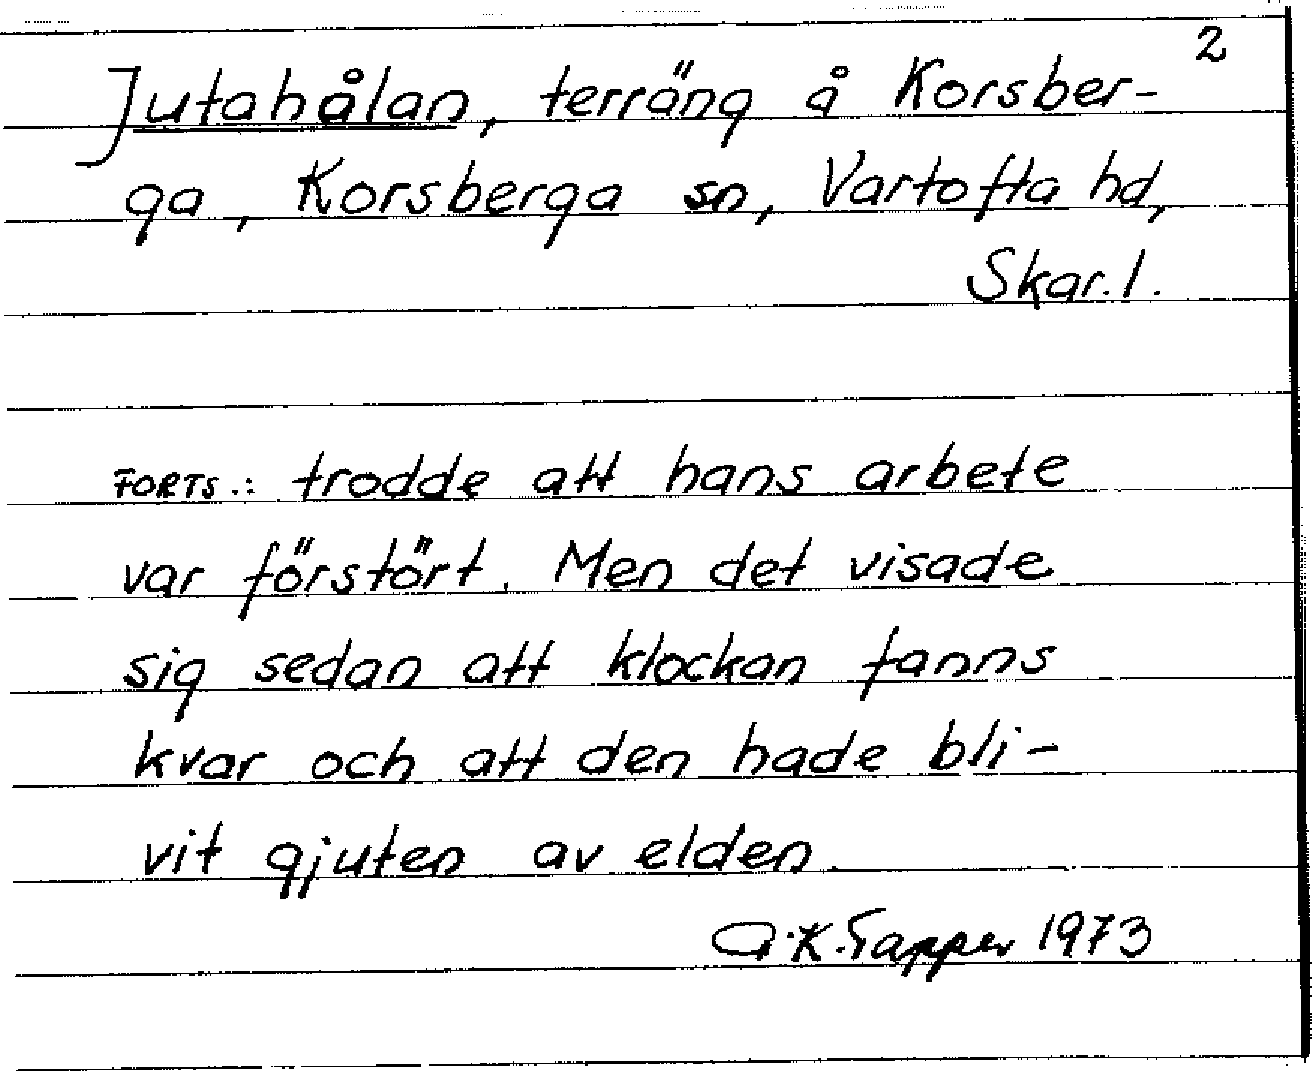 2
Jutahålan, terräng å Korsber-
ga, Korsberga sn, Vartofta hd,
Skar. l.
FORTS.: trodde att hans arbete
var förstört. Men det visade
sig sedan att klockan fanns
kvar och att den hade bli-
vit gjuten av elden.
A.K. Tapper 1973